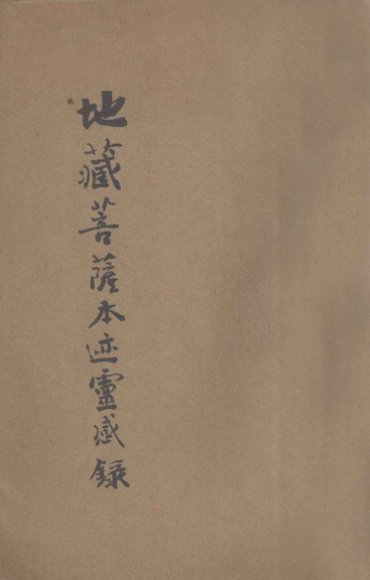 地藏菩薩本迹靈感錄